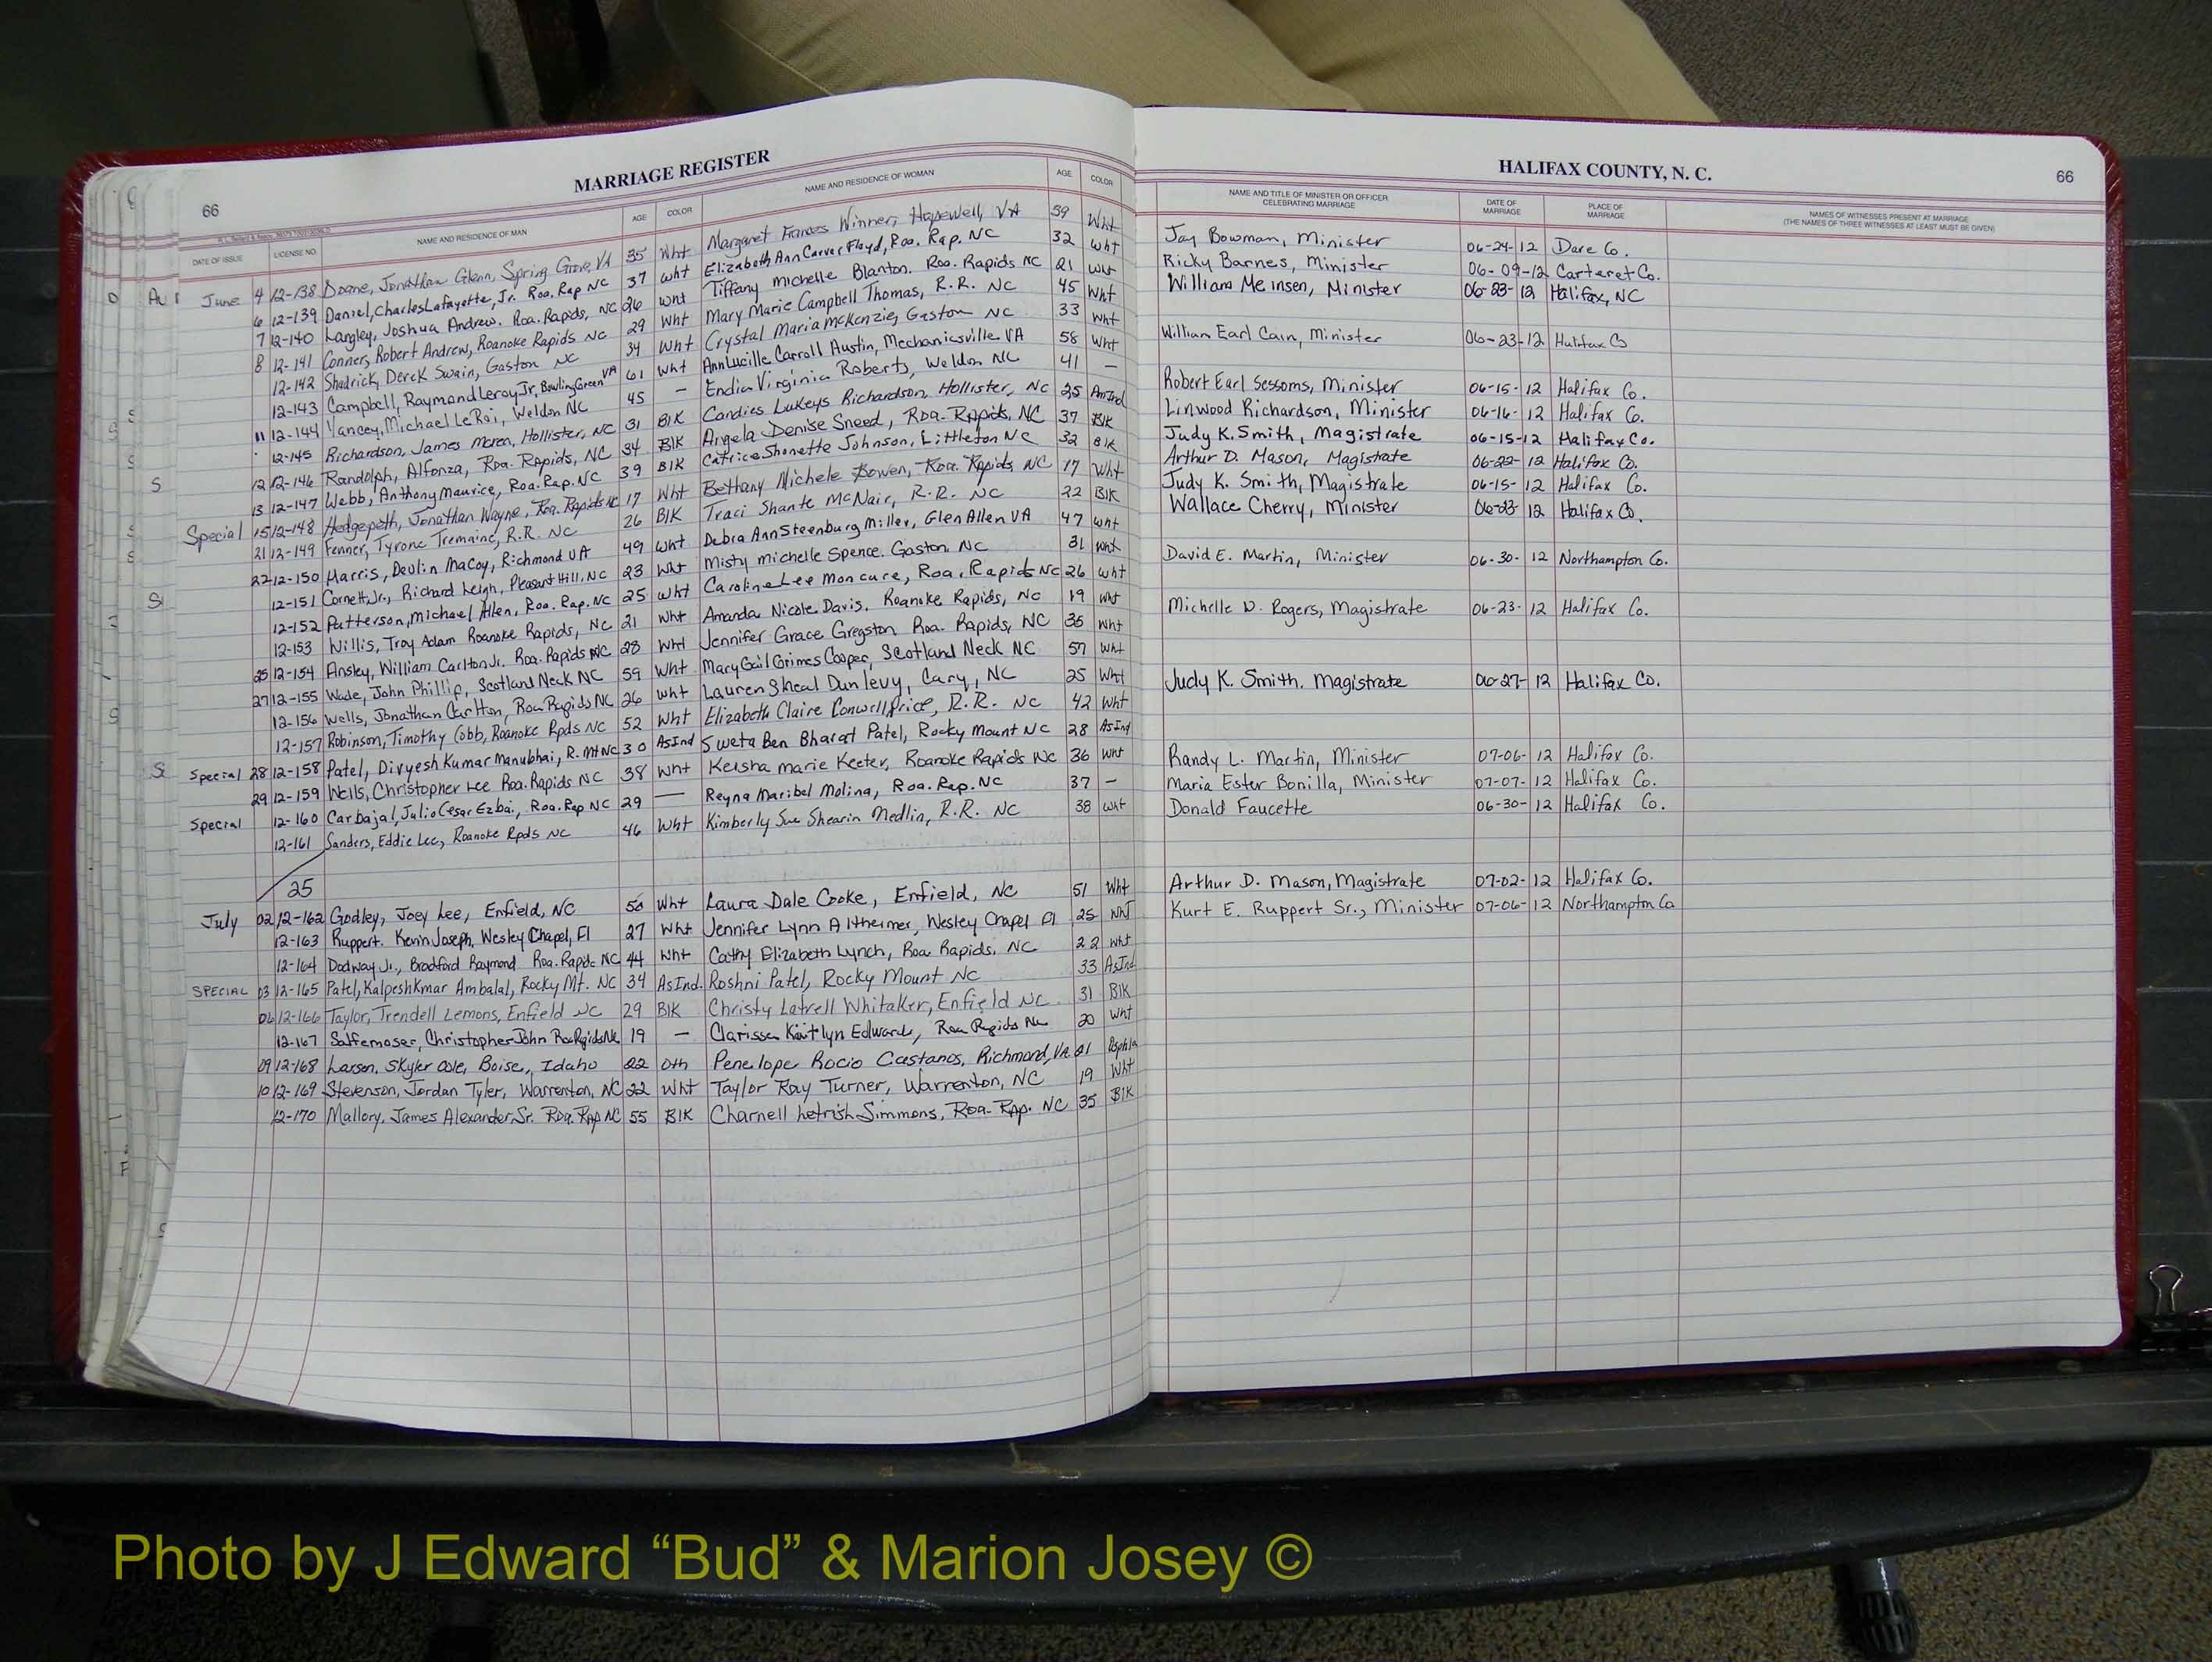 MARRIAGE REGISTER
66
DATE OF ISSUE LICENSE NO. NAME AND RESIDENCE OF MAN AGE COLOR NAME AND RESIDENCE OF WOMAN AGE COLOR
June 4 12-138 Doane, Jonathan Glenn, Spring Grove, VA 35 Wht Margaret Frances Winner, Hopewell, VA 39 Wht
6 12-139 Daniel, Charles Lafayette, Jr. Roa. Rap NC 37 Wht Elizabeth Ann Carver Floyd, Roa. Rap. NC 32 Wht
7 12-140 Langley, Joshua Andrew. Roa. Rapids, NC 26 Wht Tiffany Michelle Blanton. Roa. Rapids NC 21 Wht
8 12-141 Conner, Robert Andrew, Roanoke Rapids NC 29 Wht Mary Marie Campbell Thomas, R.R. NC 45 Wht
12-142 Shadrick, Derek Swain, Gaston NC 34 Wht Crystal Maria McKenzie, Gaston NC 33 Wht
12-143 Campbell, Raymond Leroy Jr, Bowling Green VA 61 Wht Ann Lucille Carroll Austin, Mechanicsville VA 58 Wht
11 12-144 Yancey, Michael LeRoi, Weldon NC 45 — Endia Virginia Roberts, Weldon NC 41 —
12-145 Richardson, James Moren, Hollister, NC 31 Blk Candies Lukeys Richardson, Hollister, NC 25 AmInd
12 12-146 Randolph, Alfonza, Roa. Rapids, NC 34 Blk Angela Denise Sneed, Roa. Rapids, NC 37 Blk
13 12-147 Webb, Anthony Maurice, Roa. Rap. NC 39 Blk Catrice Shonette Johnson, Littleton NC 32 Blk
Special 15 12-148 Hedgepeth, Jonathan Wayne, Roa. Rapids NC 17 Wht Bethany Michele Bowen, Roa. Rapids, NC 17 Wht
21 12-149 Fenner, Tyrone Tremaine, R.R. NC 26 Blk Traci Shante McNair, R.R. NC 22 Blk
22 12-150 Harris, Devlin Macoy, Richmond VA 49 Wht Debra Ann Steenburg Miller, Glen Allen VA 47 Wht
12-151 Cornett, Jr., Richard Leigh, Pleasant Hill, NC 23 Wht Misty Michelle Spence. Gaston, NC 31 Wht
12-152 Patterson, Michael Allen, Roa. Rap. NC 25 Wht Caroline Lee Moncure, Roa. Rapids NC 26 Wht
12-153 Willis, Troy Adam Roanoke Rapids, NC 21 Wht Amanda Nicole Davis. Roanoke Rapids, NC 19 Wht
25 12-154 Ansley, William Carlton Jr. Roa. Rapids NC 28 Wht Jennifer Grace Gregston Roa. Rapids, NC 35 Wht
27 12-155 Wade, John Phillip, Scotland Neck NC 59 Wht Mary Gail Grimes Cooper, Scotland Neck NC 57 Wht
12-156 Wells, Jonathan Carlton, Roa Rapids NC 26 Wht Lauren Sheal Dunlevy, Cary, NC 25 Wht
12-157 Robinson, Timothy Cobb, Roanoke Rpds NC 52 Wht Elizabeth Claire Conwell Price, R.R. NC 42 Wht
Special 28 12-158 Patel, Divyesh Kumar Manubhai, R. Mt NC 30 AsInd Sweta Ben Bharat Patel, Rocky Mount NC 28 AsInd
29 12-159 Wells, Christopher Lee Roa. Rapids NC 38 Wht Keisha Marie Keeter, Roanoke Rapids NC 36 Wht
Special 12-160 Carbajal, Julio Cesar Ezbai, Roa. Rap NC 29 — Reyna Maribel Molina, Roa. Rap. NC 37 —
12-161 Sanders, Eddie Lee, Roanoke Rpds NC 46 Wht Kimberly Sue Shearin Medlin, R.R. NC 38 Wht
25
July 02 12-162 Godley, Joey Lee, Enfield, NC 50 Wht Laura Dale Cooke, Enfield, NC 51 Wht
12-163 Ruppert. Kevin Joseph, Wesley Chapel, Fl 27 Wht Jennifer Lynn Altheimer, Wesley Chapel Fl 25 Wht
12-164 Dodway Jr., Bradford Raymond Roa. Rapids NC 44 Wht Cathy Elizabeth Lynch, Roa Rapids, NC 22 Wht
SPECIAL 03 12-165 Patel, Kalpeshkmar Ambalal, Rocky Mt. NC 34 AsInd. Roshni Patel, Rocky Mount NC 33 AsInd
06 12-166 Taylor, Trendell Lemons, Enfield NC 29 Blk Christy Latrell Whitaker, Enfield NC 31 Blk
12-167 Christopher John Roa Rapids NC 19 — Clarissa Kaitlyn Edwards, Roa Rapids NC 20 Wht
09 12-168 Larson, Skyler Cole, Boise, Idaho 22 Oth Penelope Rocio Castanos, Richmond, VA 21
10 12-169 Stevenson, Jordan Tyler, Warrenton, NC 22 Wht Taylor Ray Turner, Warrenton, NC 19 Wht
12-170 Mallory, James Alexander, Sr. Roa. Rap NC 55 Blk Charnell Letrish Simmons, Roa. Rap. NC 35 Blk
HALIFAX COUNTY, N. C.
66
NAME AND TITLE OF MINISTER OR OFFICER CELEBRATING MARRIAGE DATE OF MARRIAGE PLACE OF MARRIAGE NAMES OF WITNESSES PRESENT AT MARRIAGE
(THE NAMES OF THREE WITNESSES AT LEAST MUST BE GIVEN)
Jay Bowman, Minister 06-24-12 Dare Co.
Ricky Barnes, Minister 06-09-12 Carteret Co.
William Meinsen, Minister 06-23-12 Halifax, NC
William Earl Cain, Minister 06-23-12 Halifax Co
Robert Earl Sessoms, Minister 06-15-12 Halifax Co.
Linwood Richardson, Minister 06-16-12 Halifax Co.
Judy K. Smith, Magistrate 06-15-12 Halifax Co.
Arthur D. Mason, Magistrate 06-22-12 Halifax Co.
Judy K. Smith, Magistrate 06-15-12 Halifax Co.
Wallace Cherry, Minister 06-23 12 Halifax Co.
David E. Martin, Minister 06-30-12 Northampton Co.
Michelle D. Rogers, Magistrate 06-23-12 Halifax Co.
Judy K. Smith. Magistrate 06-27-12 Halifax Co.
Randy L. Martin, Minister 07-06-12 Halifax Co.
Maria Ester Bonilla, Minister 07-07-12 Halifax Co.
Donald Faucette 06-30-12 Halifax Co.
Arthur D. Mason, Magistrate 07-02-12 Halifax Co.
Kurt E. Ruppert Sr., Minister 07-06-12 Northampton Co
Photo by J Edward “Bud” & Marion Josey ©